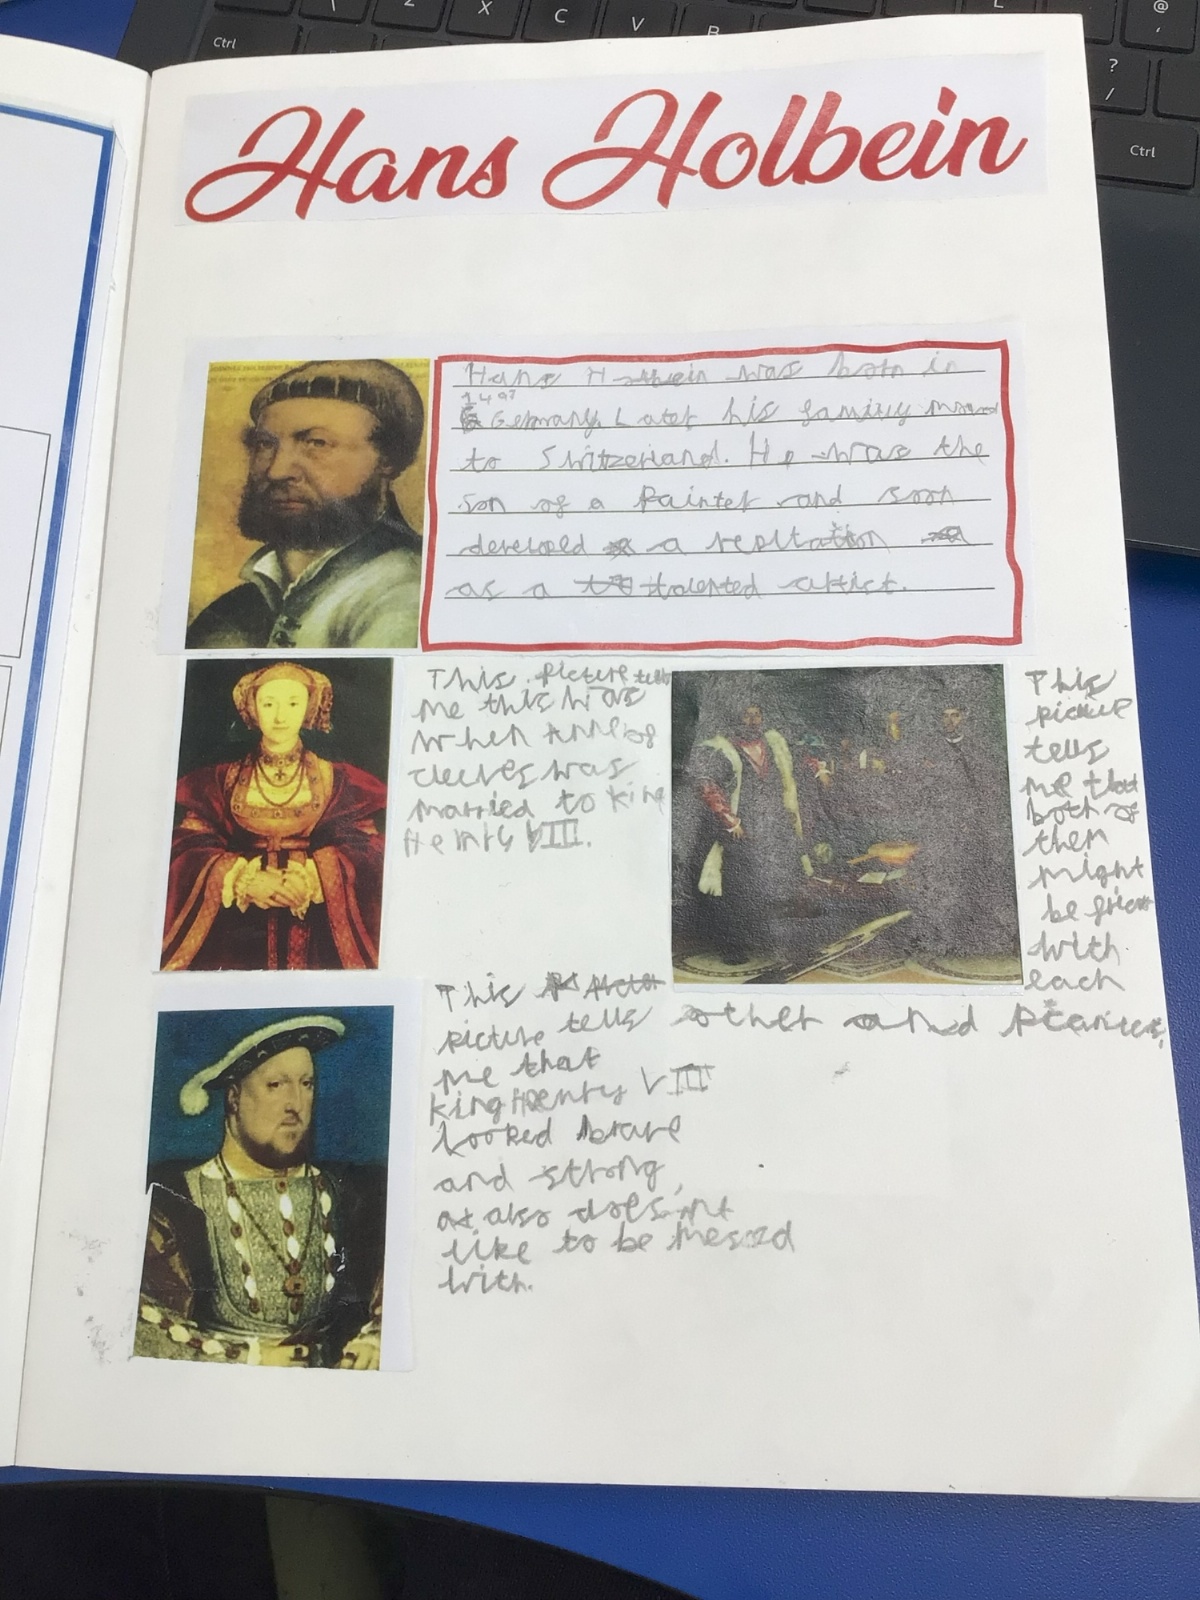 Hans Holbein
Hans Holbein was born in
1497
Germany. Later his family moved
to Switzerland. He was the
son of a Painter and soon
developed a a
as a talented artist.
This picture tells
me this was
when Anne of
cleves was
married to king
Henry VIII.
This
picture
tells
me that
both of
them
might
be
with
each
other and
This
picture tells
me that
king Henry VIII
looked brave
and strong,
also does,nt
like to be messed
with.
Ctrl
Z
X
C
V
B
L
@
'
?
/
Ctrl